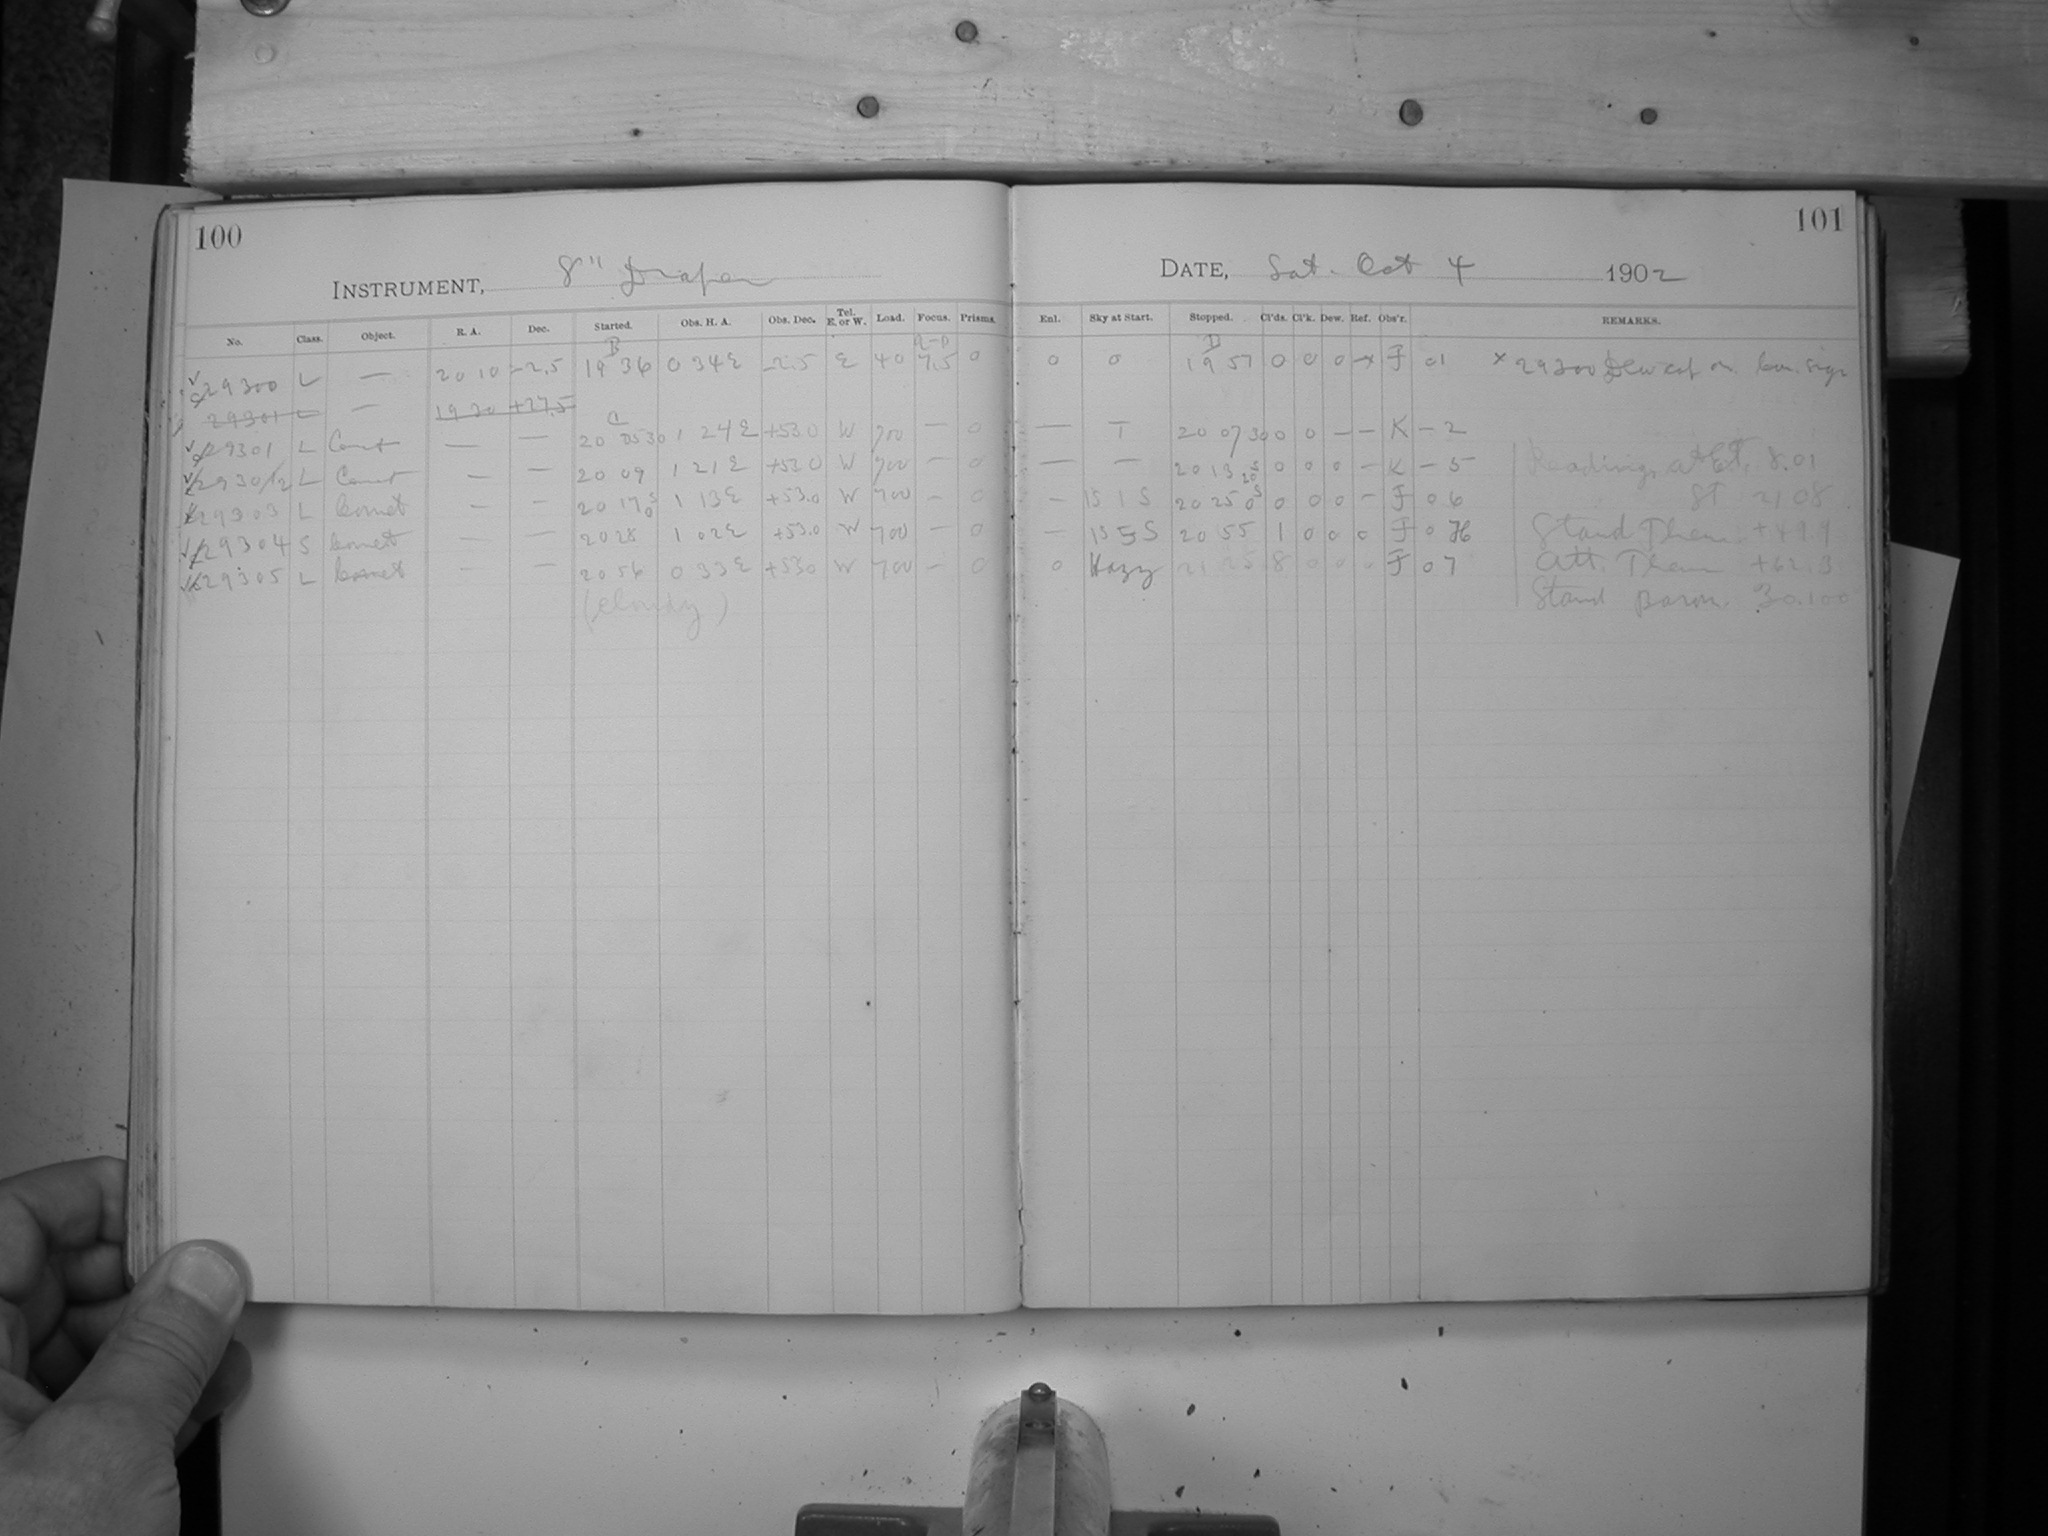 100
101
INSTRUMENT, 8" Draper
DATE, Sat. Oct 4 1902
No. Class. Object. R. A. Dec. Started. Obs. H. A. Obs. Dec. Tel. E. or W. Load. Focus. Prisms. Enl. Sky at Start. Stopped. Cl'ds. Cl'k. Dew. Ref. Obs'r. REMARKS.
B D
29300 L — 20 10 -2.5 19 36 0 34 E -2.5 E 40 7.5 0 0 0 19 57 0 0 0 × F 01 × 29300
29301 L — 19 30 +27.5
29301 L Comet — — 20 05 30 1 24 E +53.0 W 700 — 0 — T 20 07 30 0 0 — — K - 2
29302 L Comet — — 20 09 1 21 E +53.0 W 700 — 0 — — 20 13 20s 0 0 0 - K - 5 Readings at 8.01
29303 L Comet — — 20 17 0s 1 13 E +53.0 W 700 — 0 — 1S 1 S 20 25 0s 0 0 0 - F 0 6 ST 21 08
29304 S Comet — — 20 28 1 02 E +53.0 W 700 — 0 — 1S 5 S 20 55 1 0 0 0 F 0 Stand Therm.
29305 L Comet — — 20 56 0 33 E +53.0 W 700 — 0 0 Hazy 21 25 8 0 0 0 F 0 7 Att. Therm +62.3
(cloudy) Stand Barom. 30.100